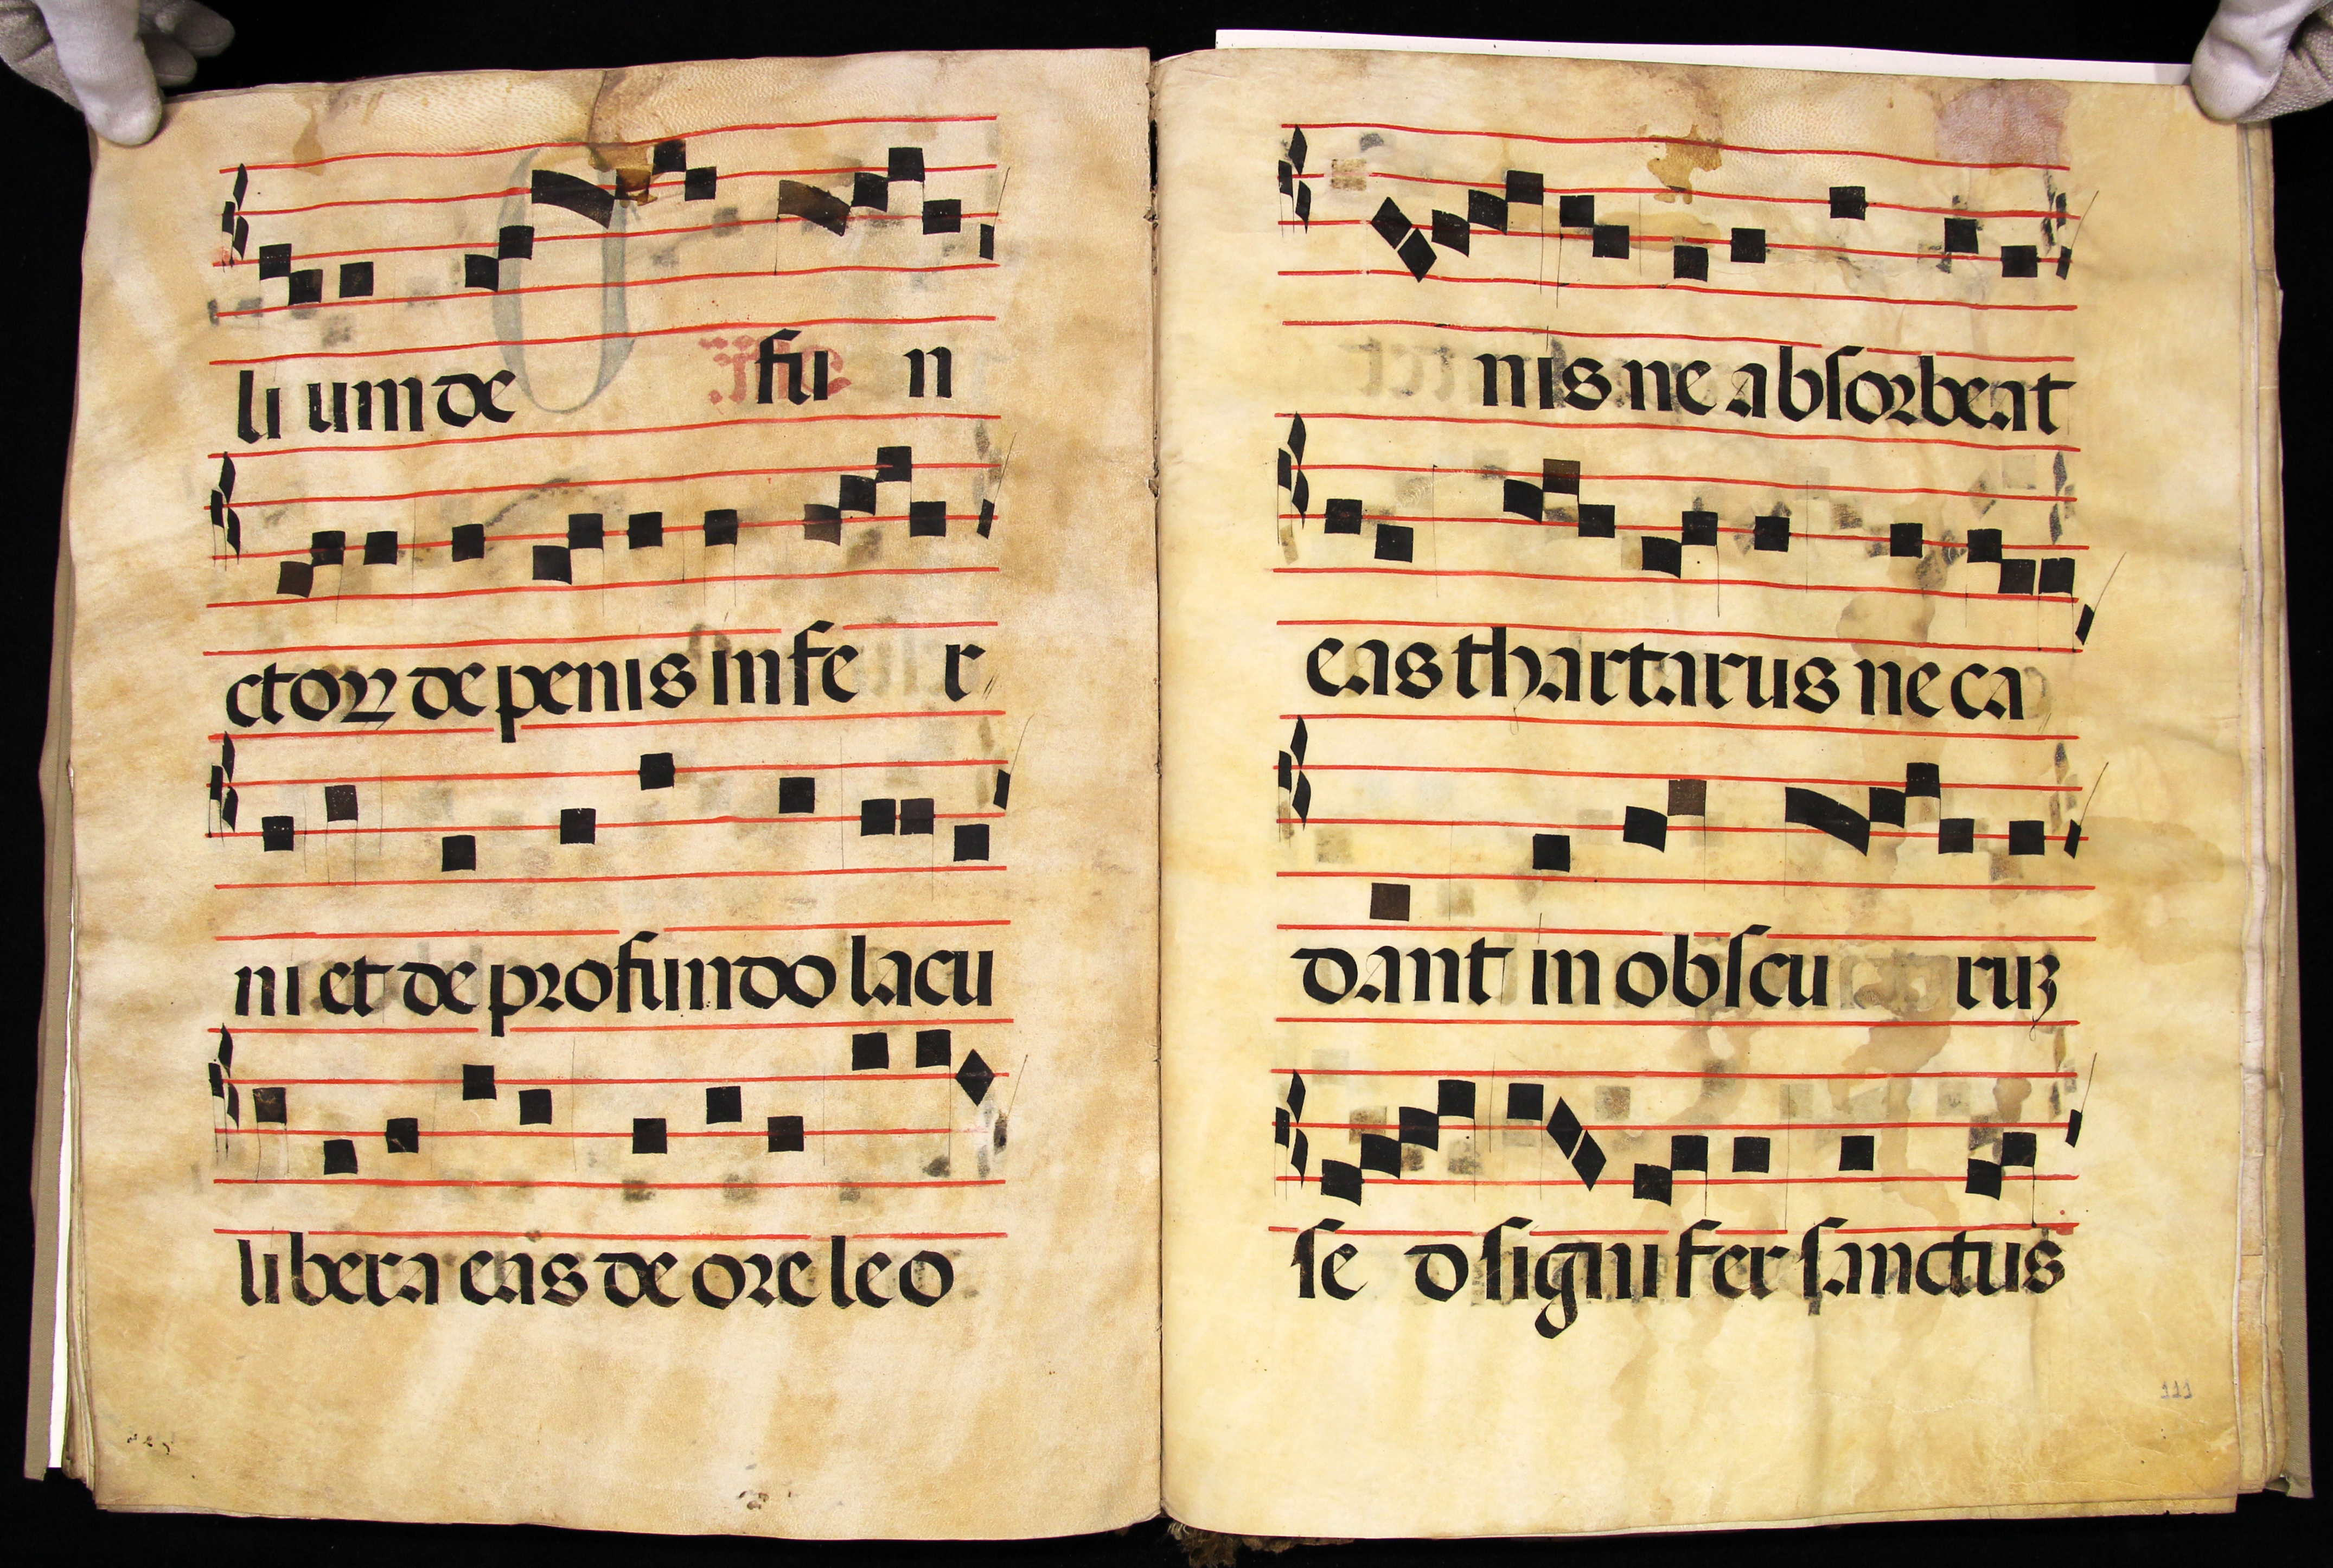 li um de fu n
ctoꝝ de penis in fe r
ni et de profundo lacu
libera eas de ore leo
nis ne absorbeat
eas thartarus ne ca
dant in obscu ruꝫ
se d signi fer sanctus
111